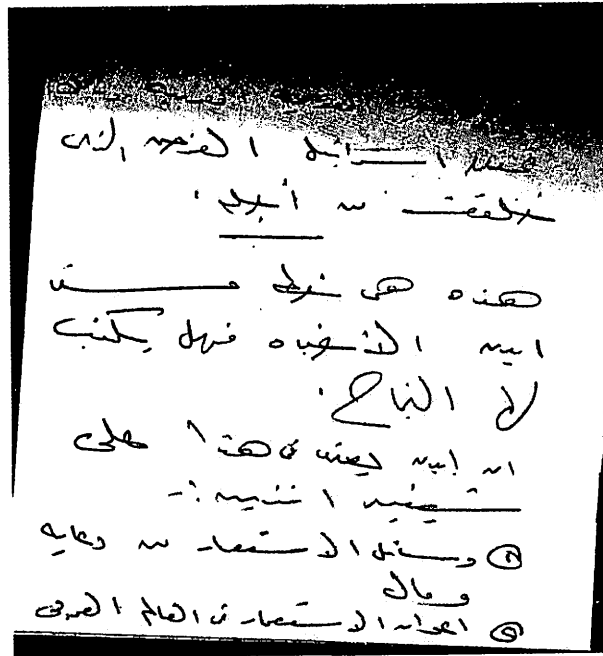 اسرائيل الغرض الذى
خلقت من أجله .
هذه هى خطط
ايدن الأخيره فهل يكتب
لها النجاح .
ان ايدن يعتمد فى هذا على
اثنين :-
① وسائل الاستعمار من دعايه
ومال
② اعوان الاستعمار فى العالم العربى